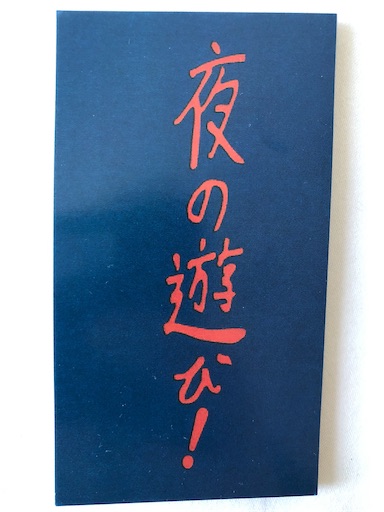 夜の遊び!